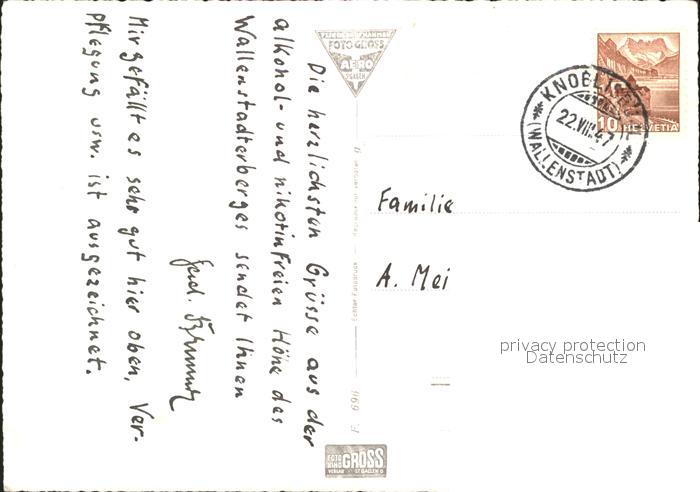 Die herzlichsten Grüsse aus der
alkohol- und nikotinfreien Höhe des
Wallenstadterberges sendet Ihnen
Mir gefällt es sehr gut hier oben, Ver-
pflegung usw. ist ausgezeichnet.
FOTO-GROSS
AERO
ST. GALLEN
Familie
A. Mei
KNOBLISBÜHL
(WALLENSTADT)
22.VIII.47
10 HELVETIA
privacy protection
Datenschutz
F. 669
FOTO
GROSS
VERLAG ST GALLEN